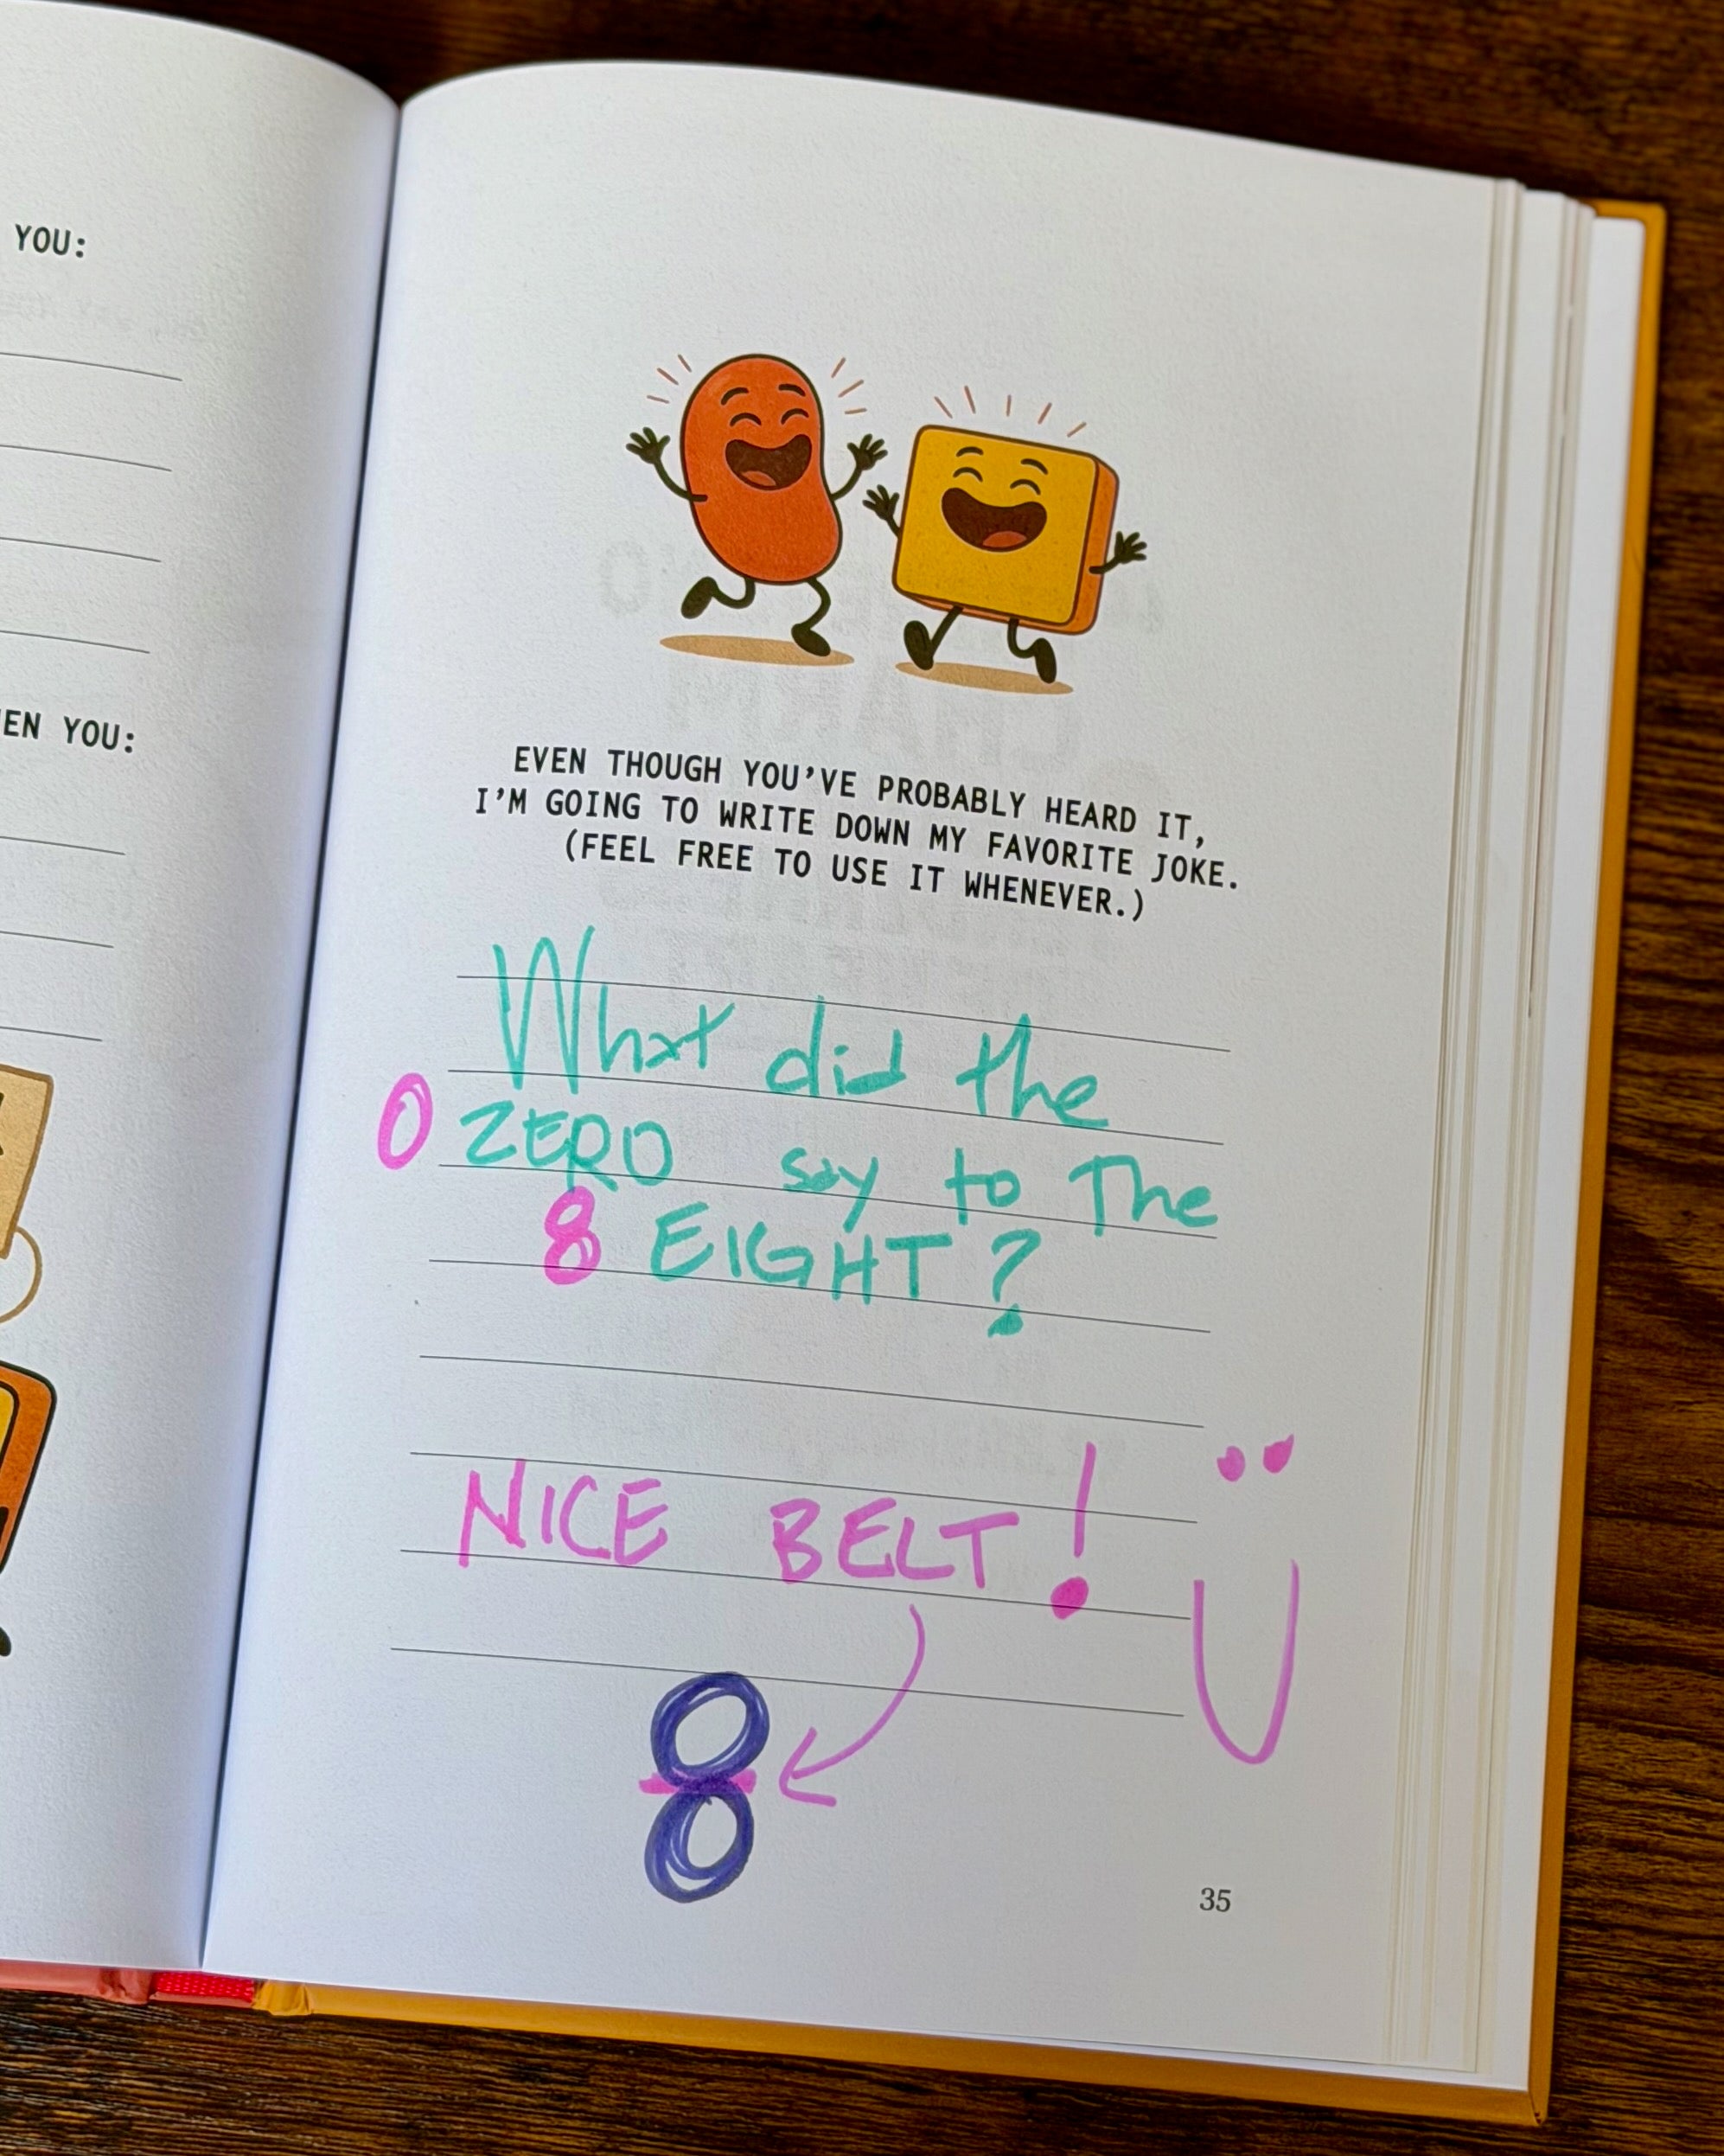 YOU:
EN YOU:
EVEN THOUGH YOU'VE PROBABLY HEARD IT,
I'M GOING TO WRITE DOWN MY FAVORITE JOKE.
(FEEL FREE TO USE IT WHENEVER.)
What did the
0 ZERO say to The
8 EIGHT?
NICE BELT!
8
35